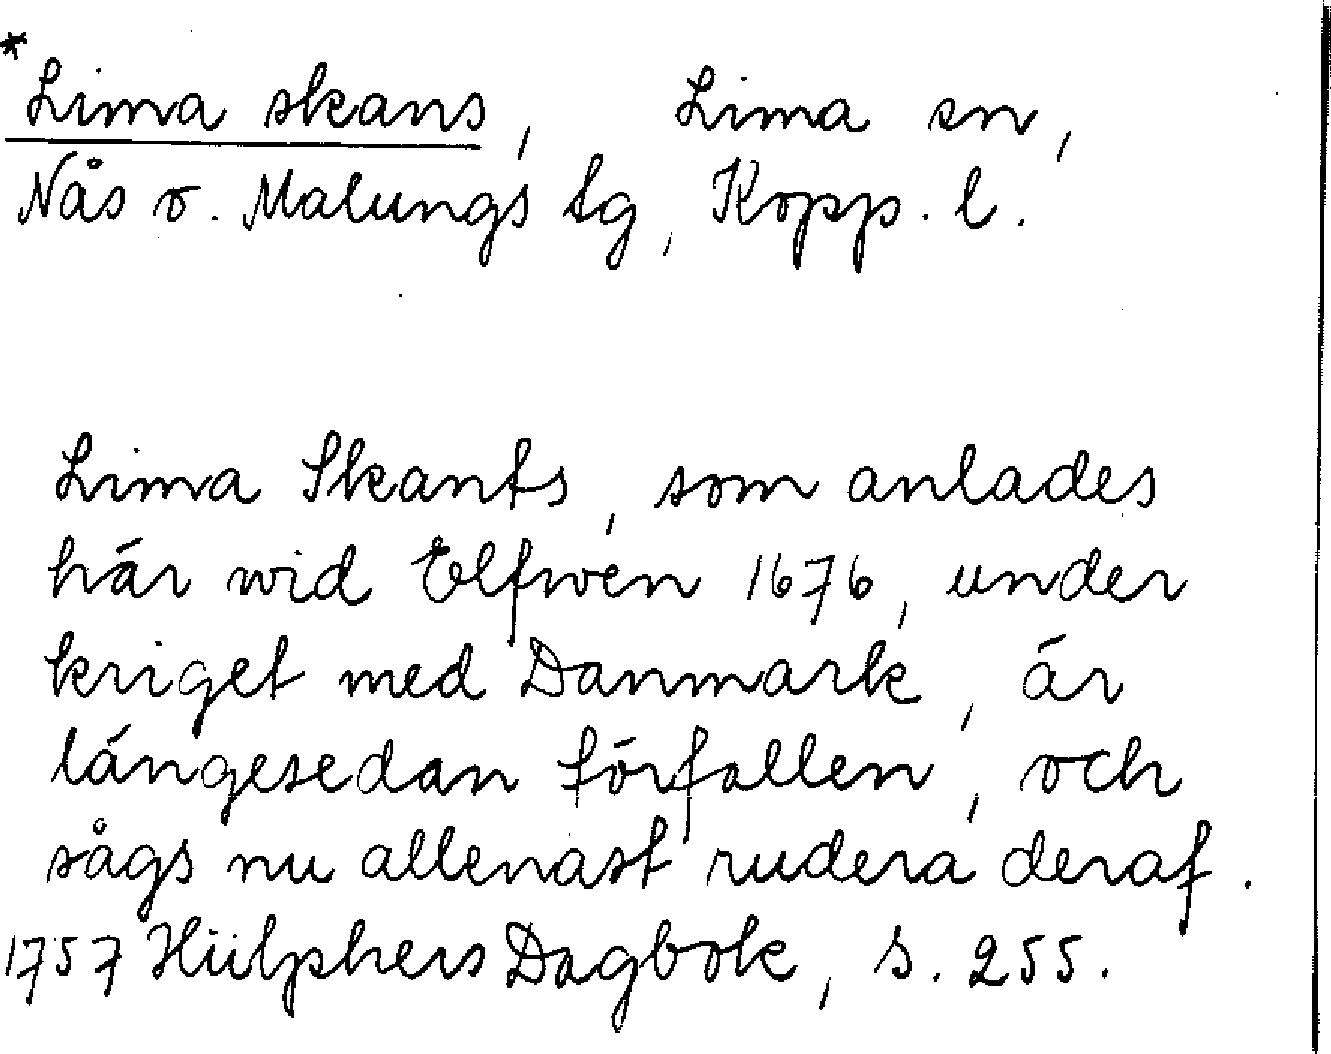 *Lima skans, Lima sn,
Nås o. Malungs tg, Kopp. l.
Lima Skants, som anlades
här wid Elfwen 1676, under
kriget med Danmark, är
längesedan förfallen, och
sågs nu allenast rudera deraf.
1757 Hülphers Dagbok, s. 255.